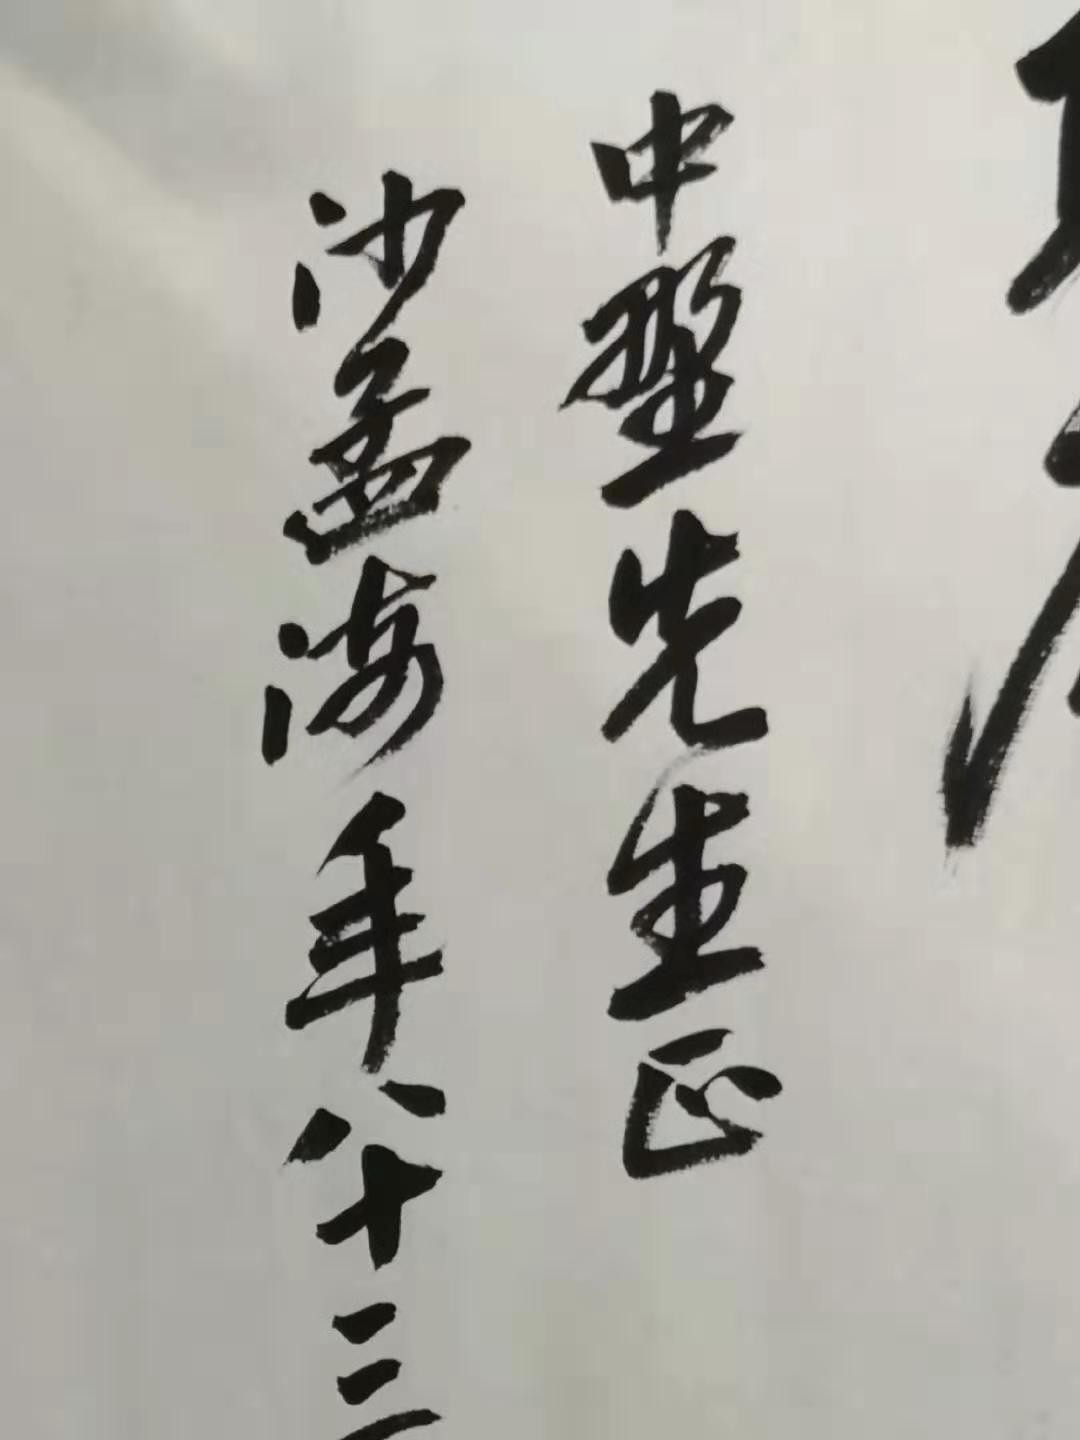 中堅先生正
沙孟海年八十三